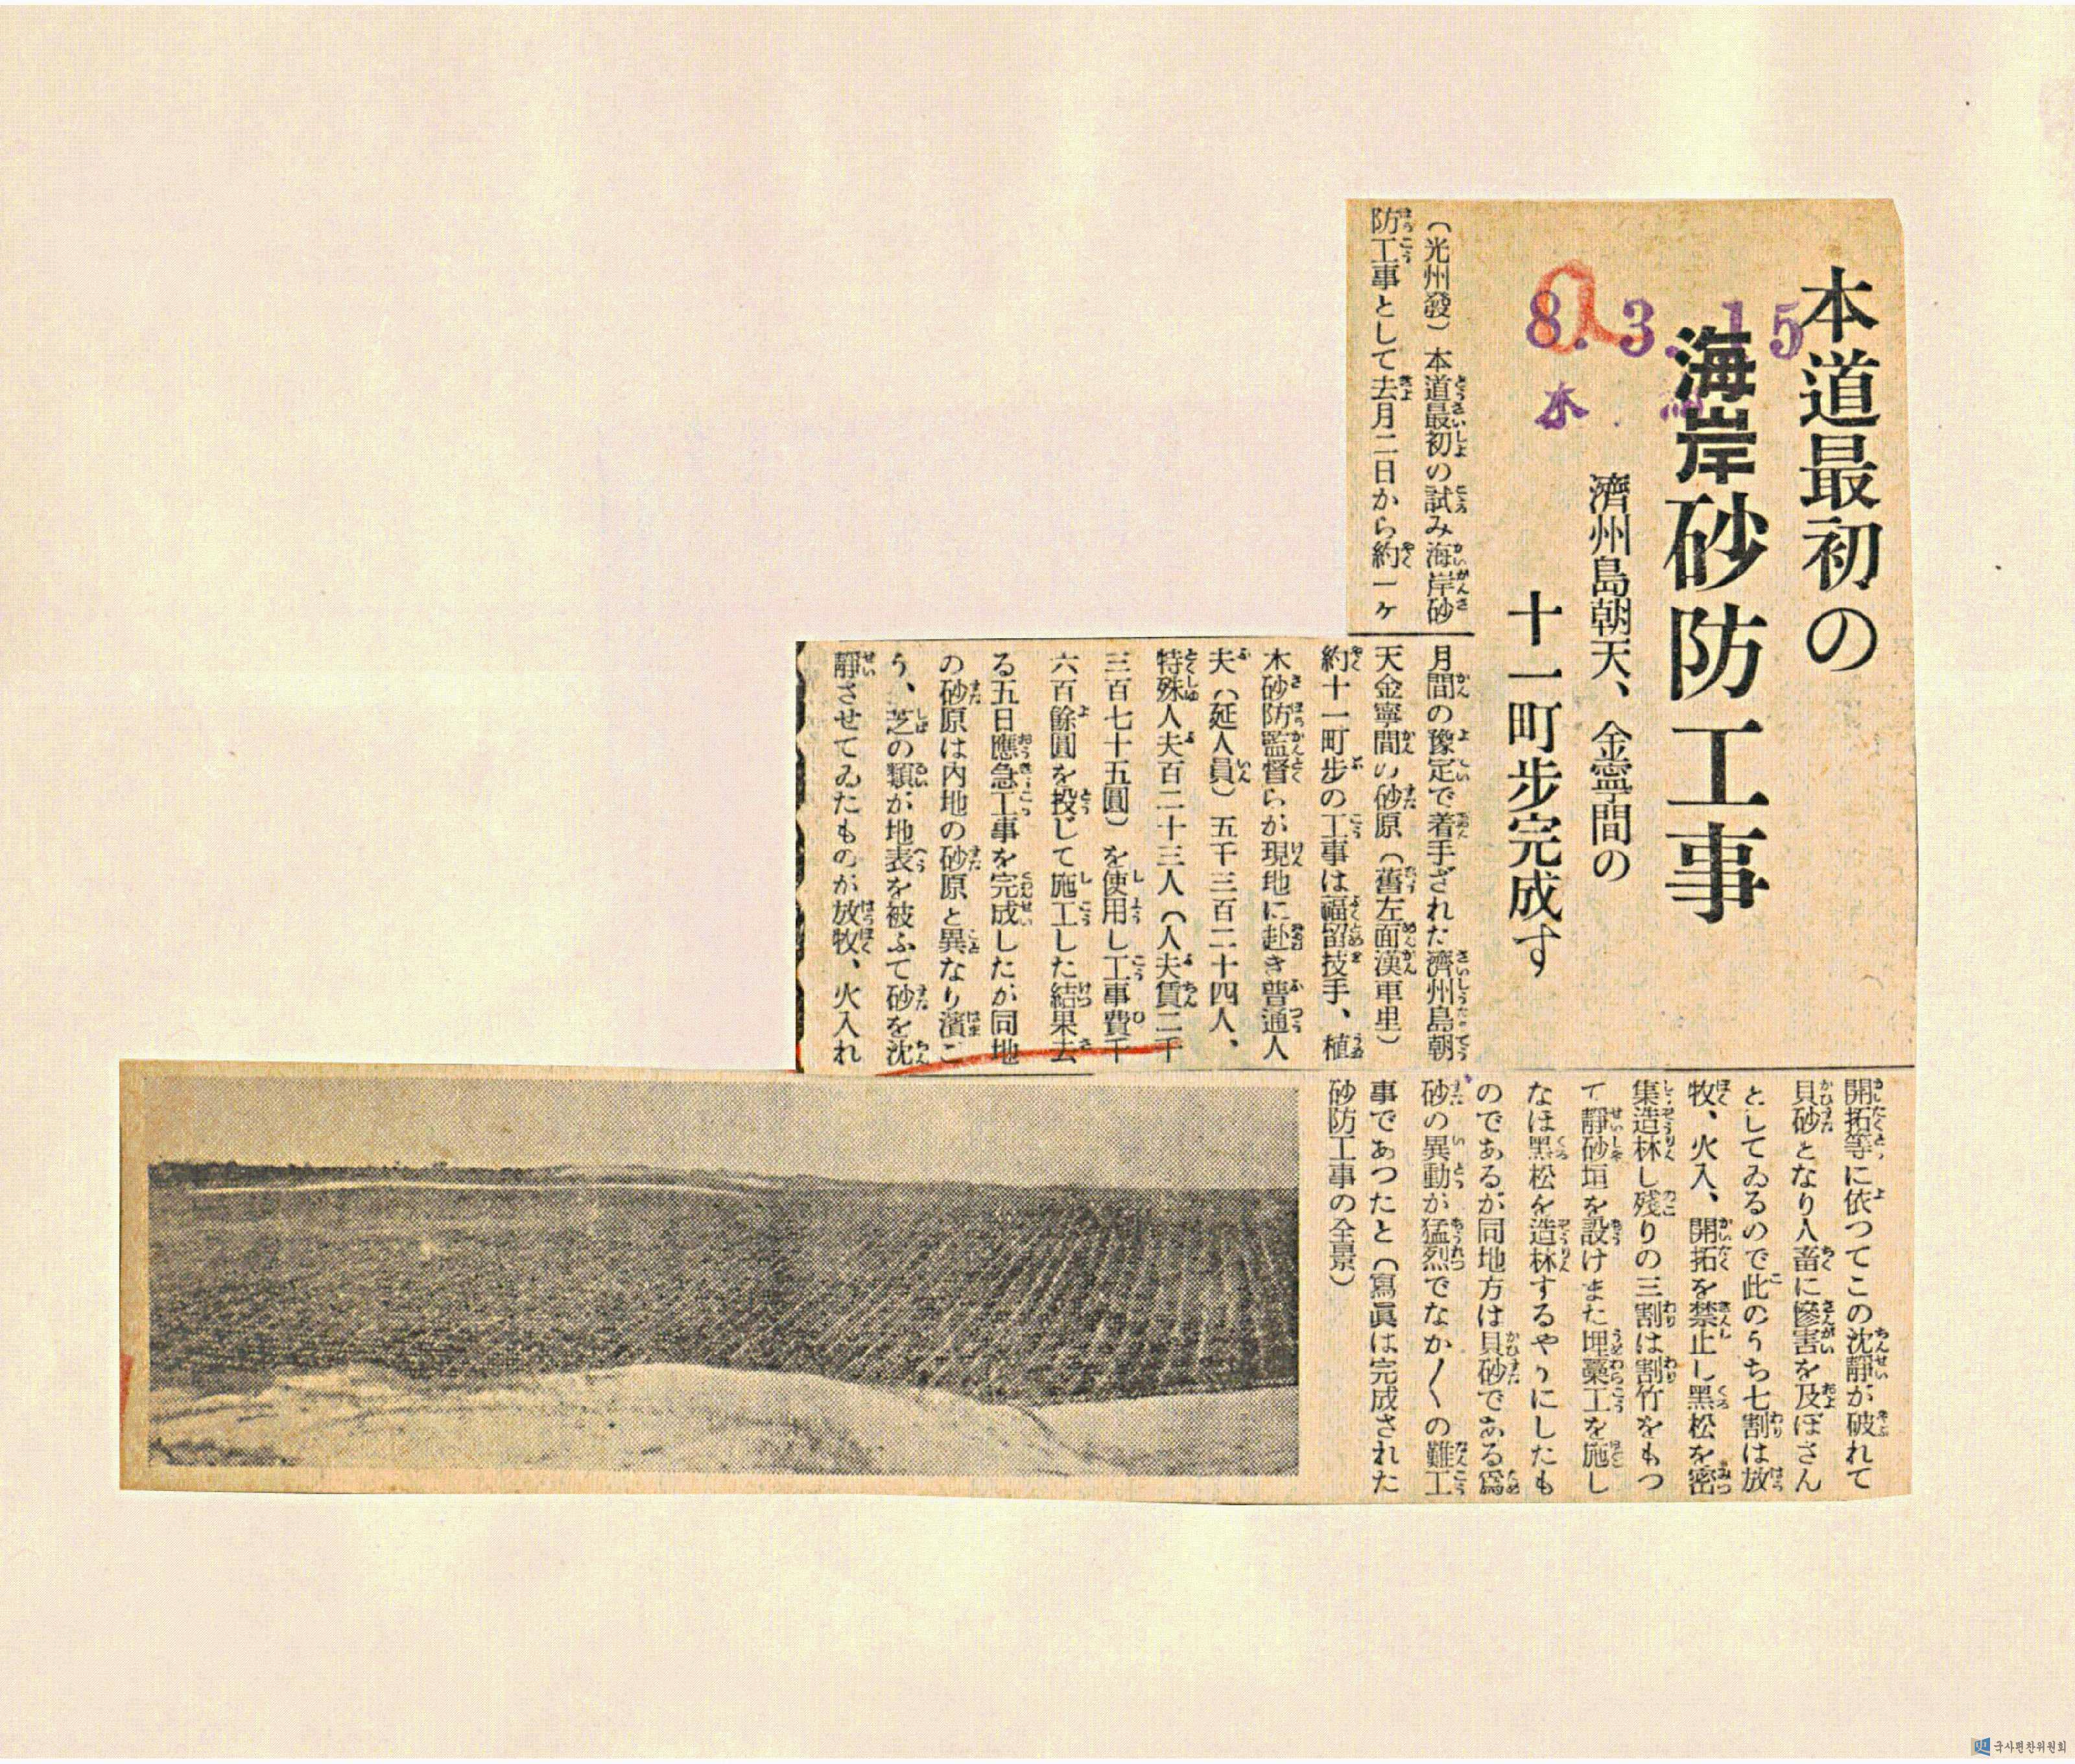 本道最初の
海岸砂防工事
濟州島朝天、金寧間の
十一町步完成す
8.3.15
(光州發)本道最初の試み海岸砂
防工事として去月二日から約一ヶ
月間の豫定で着手された濟州島朝
天金寧間の砂原(舊左面漢車里)
約十一町步の工事は福留技手、植
木砂防監督らが現地に赴き普通人
夫(延人員)五千三百二十四人、
特殊人夫百二十三人(人夫賃二千
三百七十五圓)を使用し工事費千
六百餘圓を投じて施工した結果去
る五日應急工事を完成したが同地
の砂原は内地の砂原と異なり濱ご
う、芝の類が地表を被ふて砂を沈
靜させてゐたものが放牧、火入れ
開拓等に依つてこの沈靜が破れて
貝砂となり人畜に慘害を及ぼさん
としてゐるので此のうち七割は放
牧、火入、開拓を禁止し黑松を密
集造林し殘りの三割は割竹をもつ
て靜砂垣を設けまた埋藁工を施し
なほ黑松を造林するやうにしたも
のであるが同地方は貝砂である爲
砂の異動が猛烈でなか〳〵の難工
事であつたと(寫眞は完成された
砂防工事の全景)
국사편찬위원회